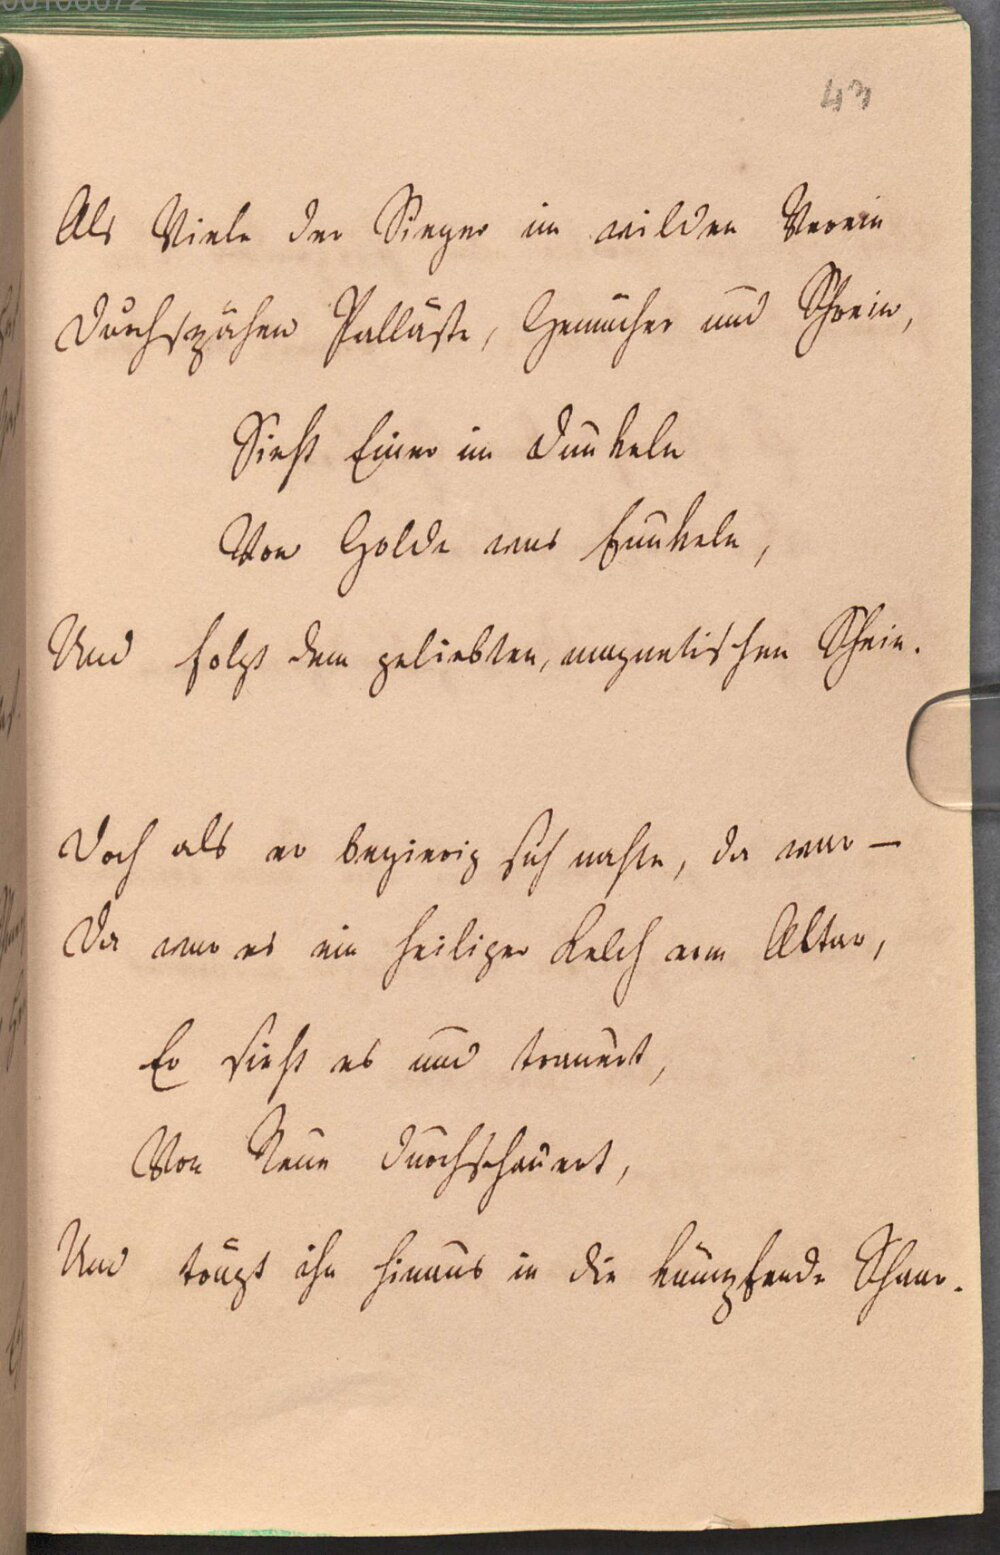 00106072
43
Als Viele der Sieger im wilden Verein
Durchspähen Palläste, Gemächer und Schrein,
Sieht Einer im Dunkeln
Von Golde was funkeln,
Und folgt dem geliebten, magnetischen Schein.
Doch als er begierig sich nahte, da war –
Da war es ein heiliger Kelch vom Altar,
Er sieht es und trauert,
Von Reue durchschauert,
Und trägt ihn hinaus in die kämpfende Schaar.